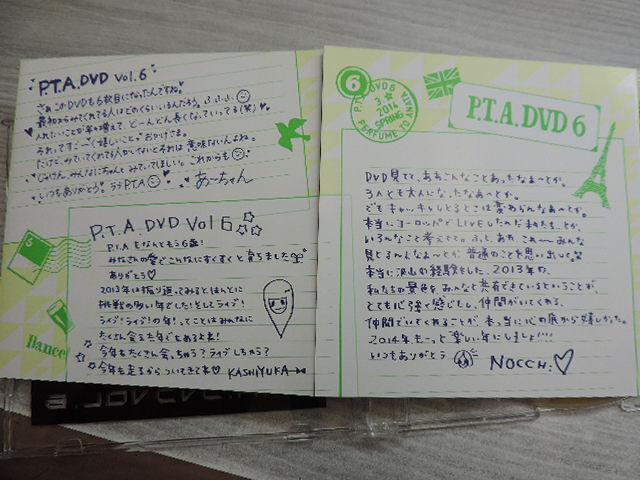 P.T.A.DVD Vol.6
さぁこのDVDも6枚目になったんですね。
最初からみてくれてる人はどのくらいいるんだろう。ふ、ふ、ふ
入れたいことが年々増えて、どーんどん長くなっていってる(笑)
それってすごーく嬉しいこと。おかげさま。
だけど、みていてくれてる人がいないとそれは意味ないんよね。
じゃけん、みんなにちゃんとみていてほしい。これからも
いつもありがとう。ラブP.T.A
あ〜ちゃん
P.T.A.DVD Vol 6
P.T.Aもなんともう6歳!
みなさんの愛でこんなにすくすくと育ちました
ありがとう♡
2013年は振り返ってみるとほんとに
挑戦の多い年でした!そしてライブ!
ライブ!ライブの年!ってことはみんなに
たくさん会えた年でもあるよね!
今年もたくさん会っちゃう?ライブしちゃう?
今年も走るからついてきてね♡ KASHIYUKA
6
Dance
6
P.T.A. DVD 6
3 ☆
2014
SPRING
PERFUME TO ANATA
P.T.A.DVD 6
DVD見てて、ああこんなことあったなぁ〜とか。
3人とも大人になったなぁ〜とか。
でもキャッキャしてるとこは変わらんなぁ〜とか。
本当にヨーロッパでLIVEしたんだ私たち、とか。
いろんなこと考えてて。ふと、ああ これ〜みんな
見とるんよなぁ〜とか 普通のことを思い出して笑
本当に沢山の経験をした、2013年の、
私たちの景色をみんなと共有できているということが、
とても心強く感じるし、仲間がいてくれる、
仲間でいてくれることが、本っ当に心の底から嬉しかった。
2014年もっと楽しい年にしましょ!!!
いつもありがとう NOCCHi.♡